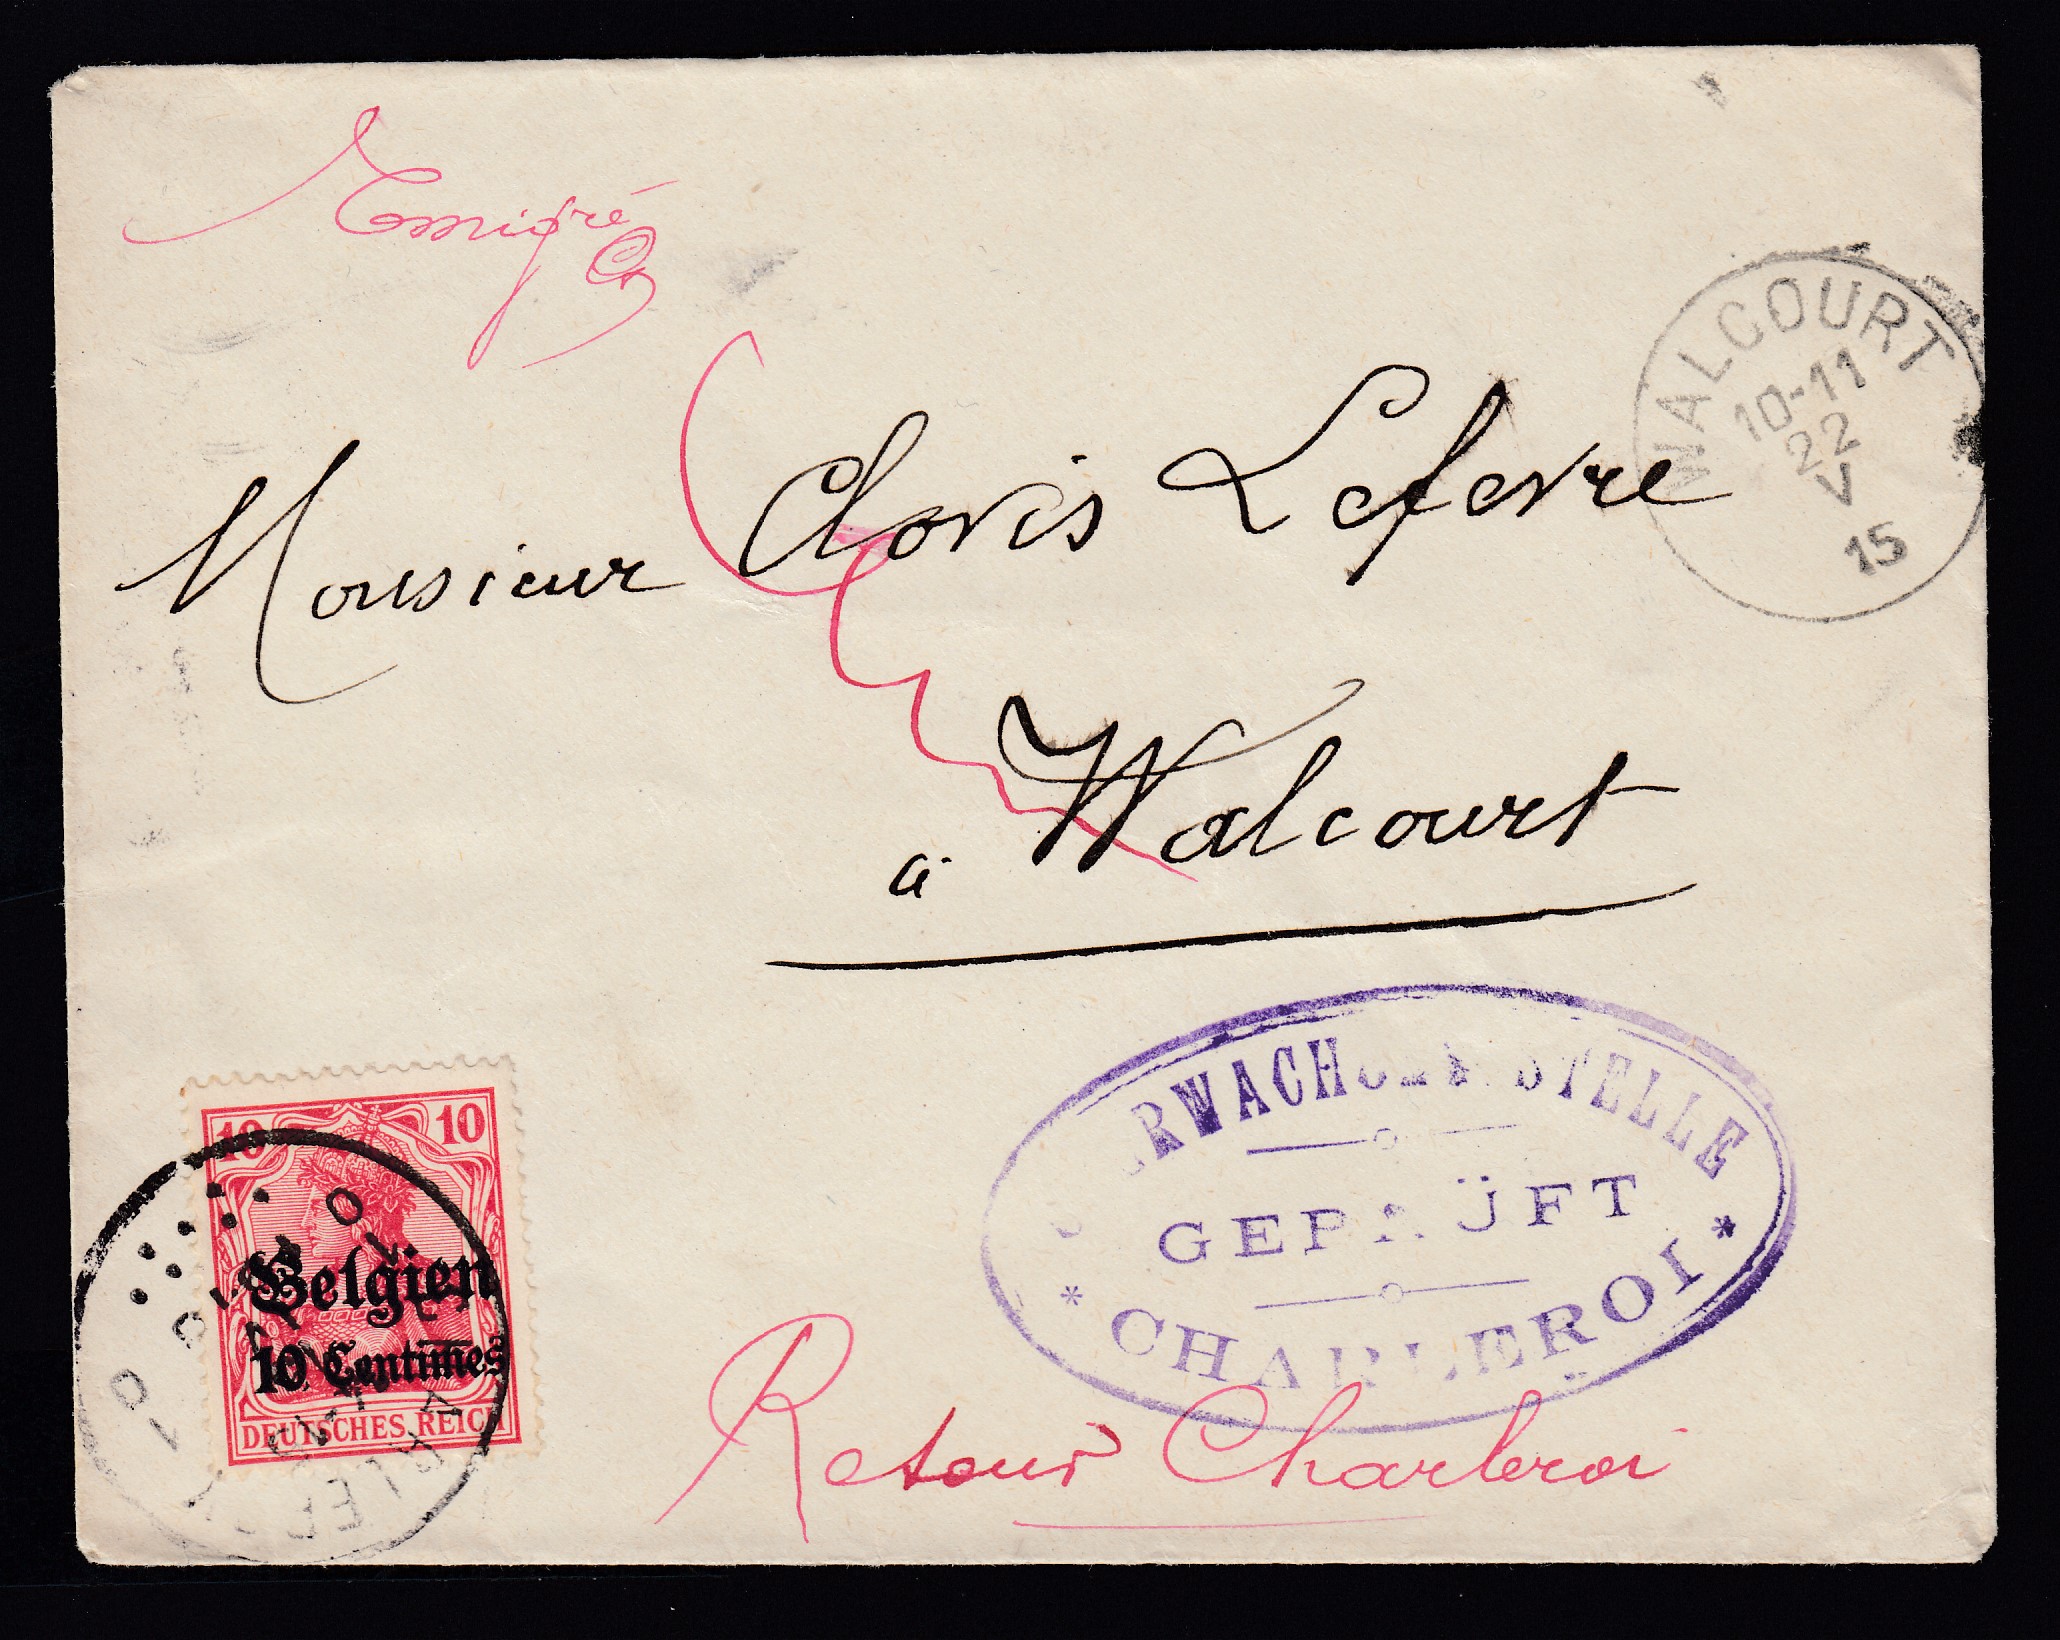 Emigré
WALCOURT
10-11
22
V
15
Monsieur Clovis Lefevre
à Walcourt
GEPRÜFT
* CHARLEROI *
10 10
Belgien
10 Centimes
DEUTSCHES REICH
Retour Charleroi